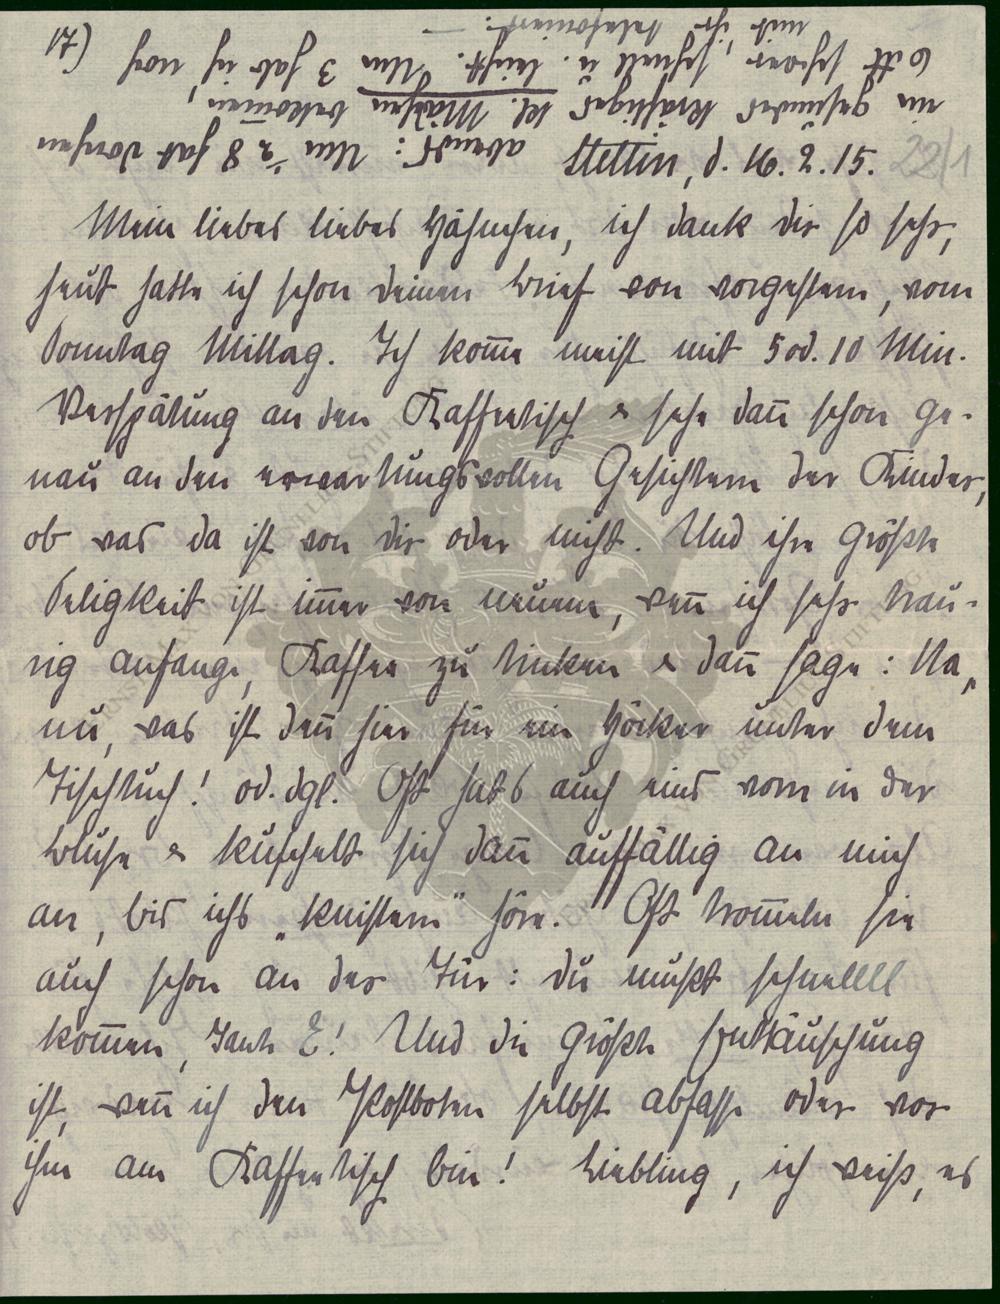 17)
Stettin, d. 16.2.15. 22/1
Mein liebes liebes Hähnchen, ich dank dir so sehr,
heut hatte ich schon deinen Brief von vorgestern, vom
Sonntag Mittag. Ich kom̄e meist mit 5 od. 10 Min.
Verspätung an den Kaffeetisch & sehe dan̄ schon ge-
nau an den erwartungsvollen Gesichtern der Kinder,
ob was da ist von dir oder nicht. Und ihre größte
Seligkeit ist im̄er von neuem, wen̄ ich sehr trau-
rig anfange, Kaffee zu trinken & dan̄ sage: Na,
nu, was ist den̄ hier für ein Höcker unter dem
Tischtuch! od. dgl. Oft hats auch eins vorn in der
Bluse & kuschelt sich dan̄ auffällig an mich
an, bis ichs „knistern" höre. Oft trom̄eln sie
auch schon an der Tür: du mußt schnellll
kom̄en, Tante E! Und die größte Enttäuschung
ist, wen̄ ich den Postboten selbst abfasse oder vor
ihm am Kaffeetisch bin! Liebling, ich weiß, es
abends: Um ½ 8 hat Dorchen
ein gesundes kräftiges kl. Mädchen bekom̄en,
Gott sehr schnell u. leicht. Um 3 hab ich noch
mit ihr telefoniert. —